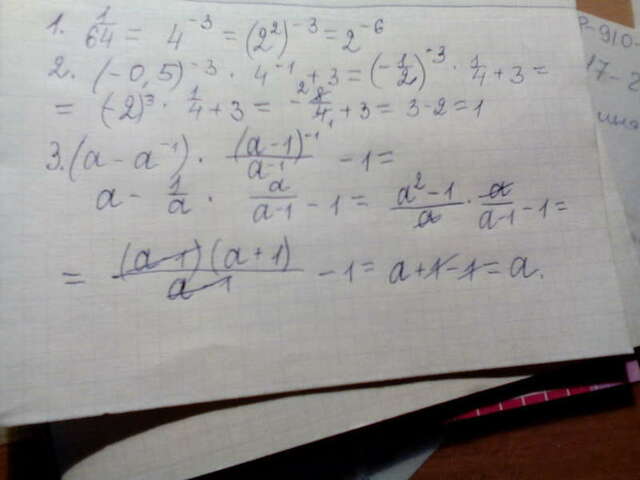 1. 1/64 = 4^-3 = (2^2)^-3 = 2^-6
2. (-0,5)^-3 · 4^-1 + 3 = (-1/2)^-3 · 1/4 + 3 =
= (-2)^3 · 1/4 + 3 = -8/4 + 3 = 3 - 2 = 1
3. (a - a^-1) · (a-1)^-1/a^-1 - 1 =
a - 1/a · a/a-1 - 1 = a^2-1/a · a/a-1 - 1 =
= (a-1)(a+1)/a-1 - 1 = a+1-1 = a.